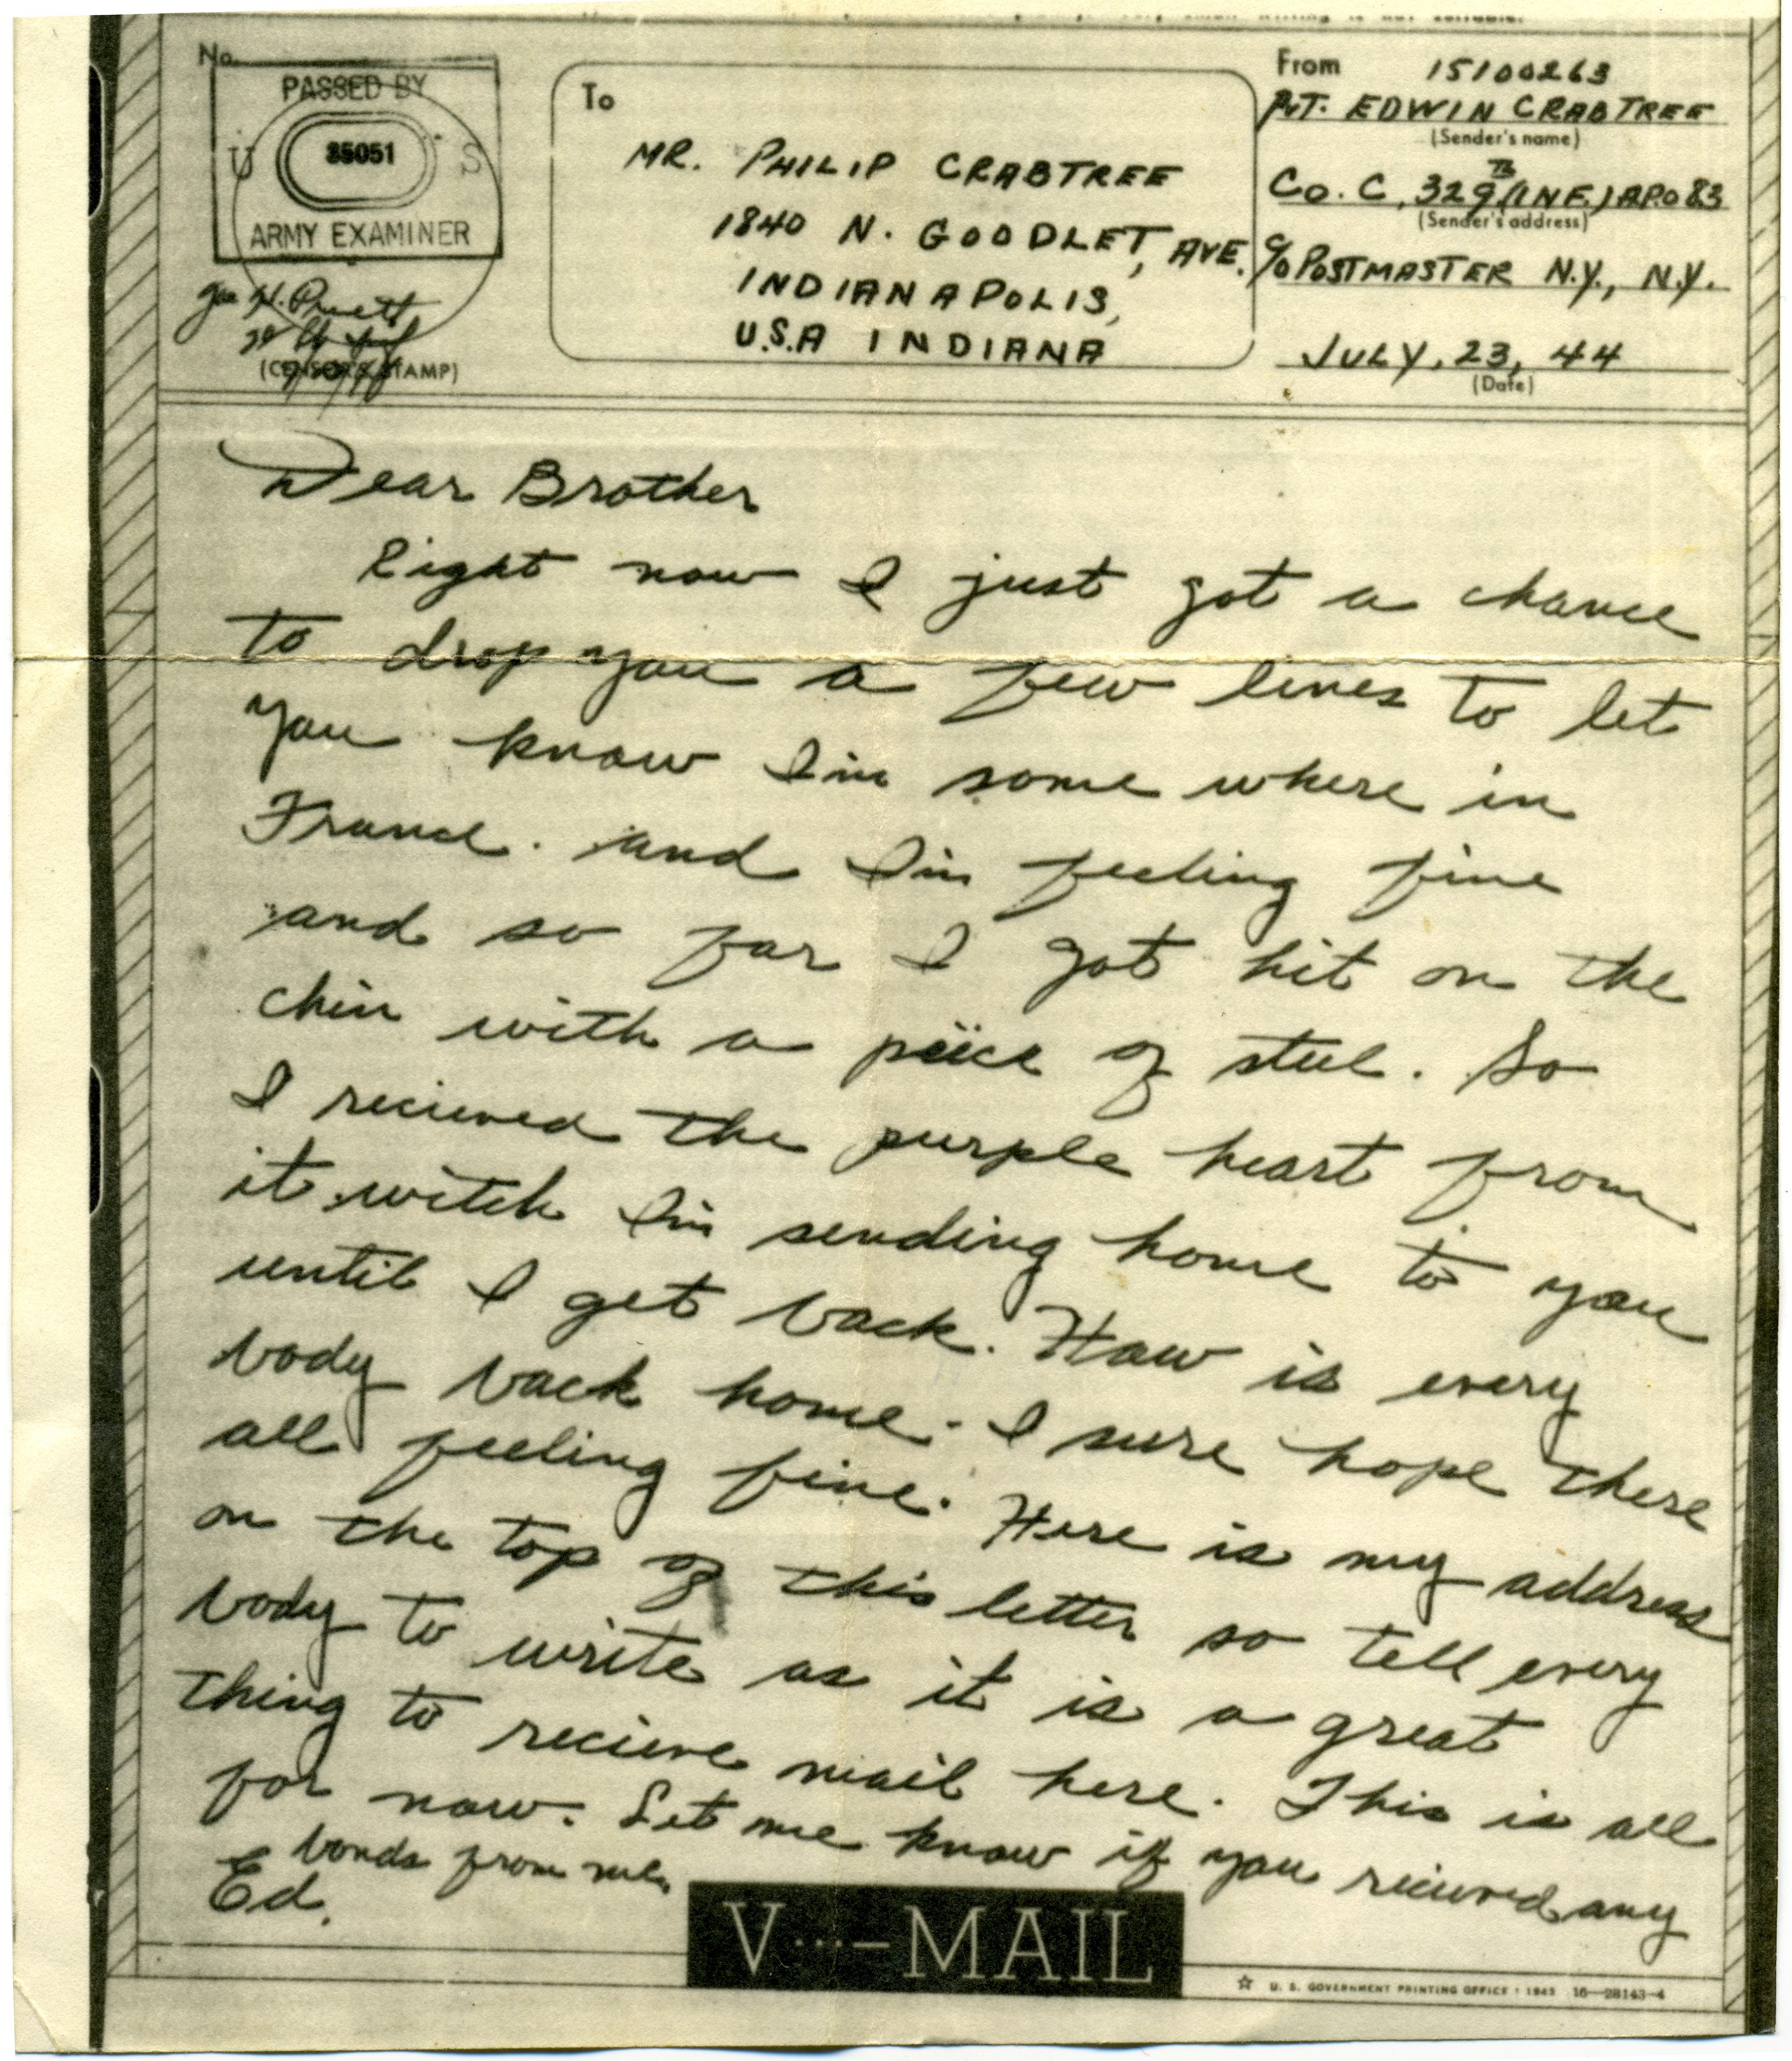 No.
PASSED BY
U S
35051
ARMY EXAMINER
(CENSOR'S STAMP)
To
MR. PHILIP CRABTREE
1840 N. GOODLET, AVE.
INDIANAPOLIS,
U.S.A INDIANA
From 15100263
PVT. EDWIN CRABTREE
(Sender's name)
Co. C, 329TH (INF.) APO 83
(Sender's address)
c/o POSTMASTER N.Y., N.Y.
JULY, 23, 44
(Date)
Dear Brother
Right now I just got a chance
to drop you a few lines to let
you know I'm some where in
France. and I'm feeling fine
and so far I got hit on the
chin with a piece of steel. So
I recieved the purple heart from
it witch I'm sending home to you
until I get back. How is every
body back home. I sure hope there
all feeling fine. Here is my address
on the top of this letter so tell every
body to write as it is a great
thing to recieve mail here. This is all
for now. Let me know if you recieved any
bonds from me.
Ed.
V···—MAIL
☆ U. S. GOVERNMENT PRINTING OFFICE : 1943 16—28143-4